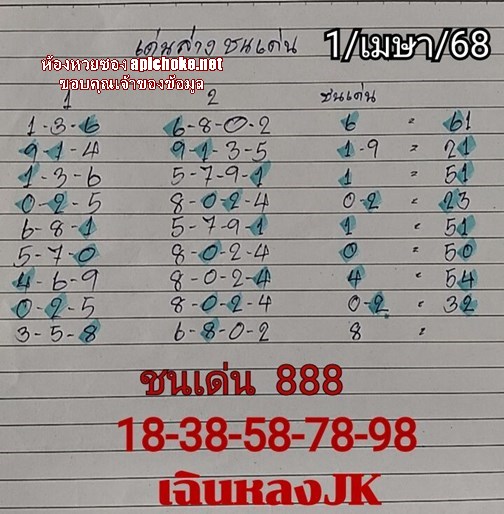 เด่นล่าง ชนเด่น 1/เมษา/68
ห้องหวยซอง apichoke.net
ขอบคุณเจ้าของข้อมูล
1 2 ชนเด่น
1-3-6 6-8-0-2 6 = 61
9-1-4 9-1-3-5 1-9 = 21
1-3-6 5-7-9-1 1 = 51
0-2-5 8-0-2-4 0-2 = 23
6-8-1 5-7-9-1 1 = 51
5-7-0 8-0-2-4 0 = 50
4-6-9 8-0-2-4 4 = 54
0-2-5 8-0-2-4 0-2 = 32
3-5-8 6-8-0-2 8 =
ชนเด่น 888
18-38-58-78-98
เฉินหลงJK